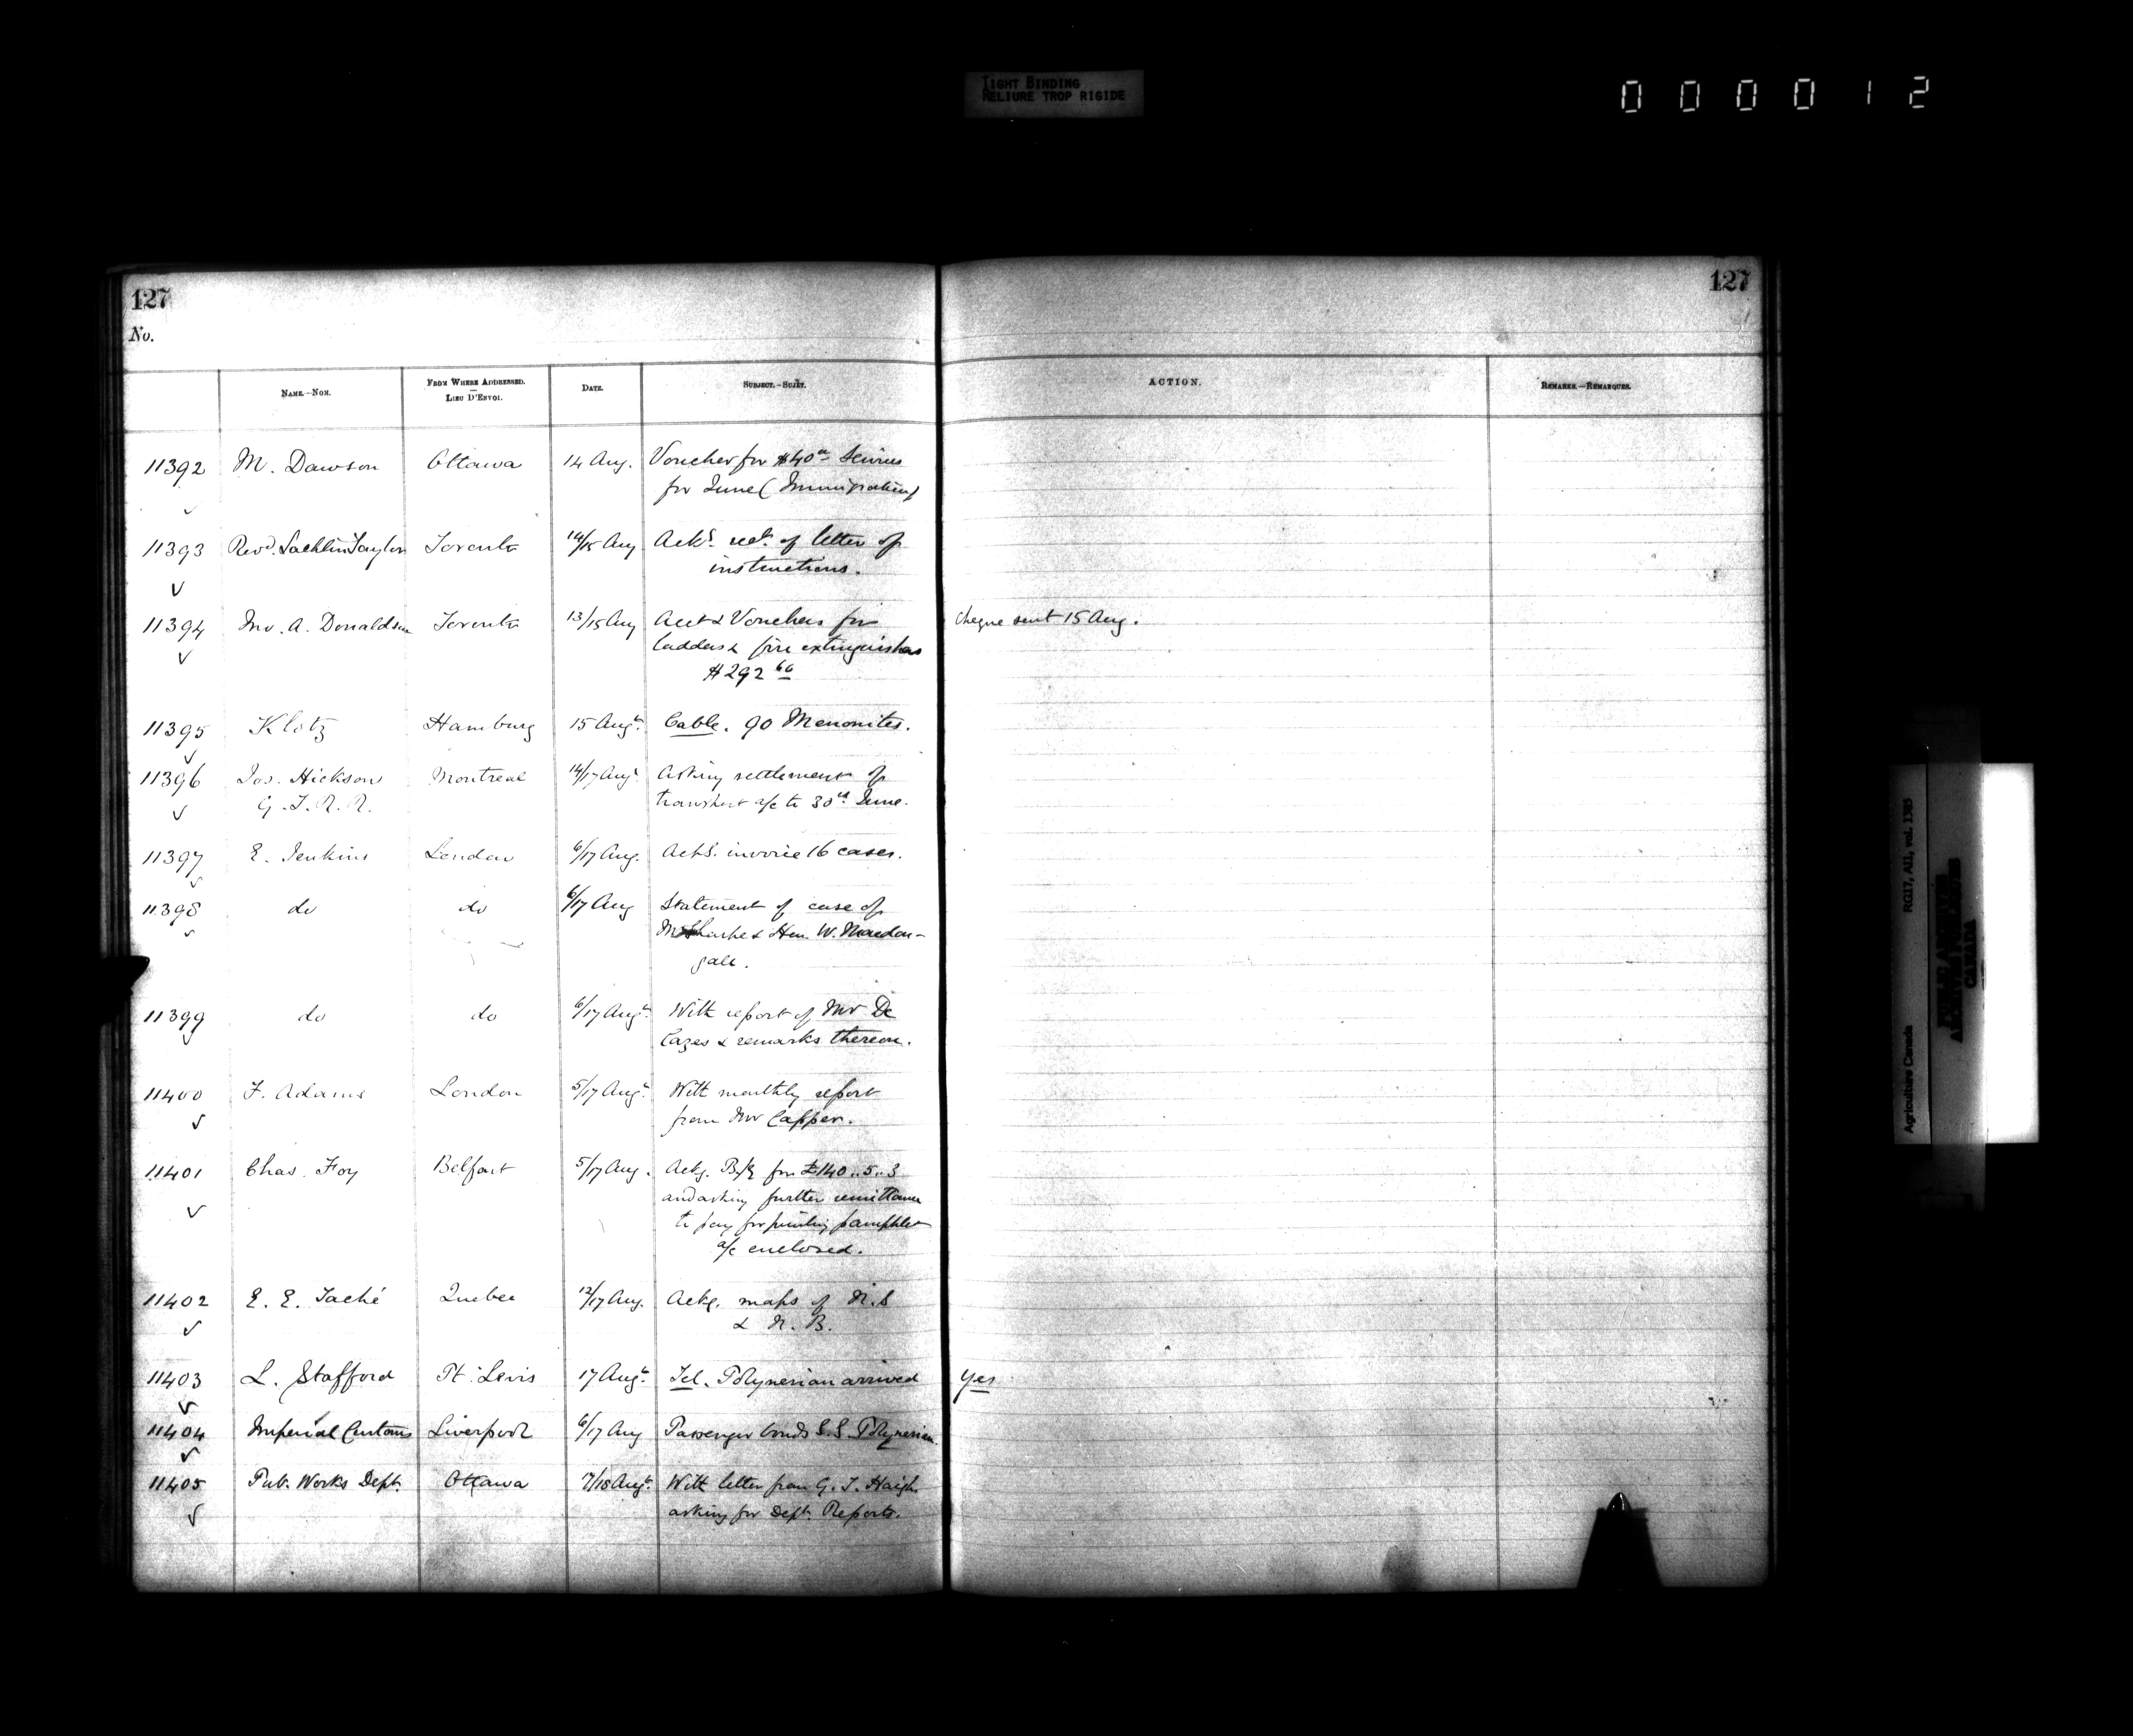 TIGHT BINDING
RELIURE TROP RIGIDE
000012
127
127
No.
NAME.—NOM.
FROM WHERE ADDRESSED.
LIEU D'ENVOI.
DATE.
SUBJECT.—SUJET.
ACTION.
REMARKS.—REMARQUES.
11392 M. Dawson Ottawa 14 Aug. Voucher for $40 00 Services
for June (Immigration)
11393 Revd. Lachlin Taylor Toronto 14/15 Aug Ackg. rect. of letter of
instructions.
11394 Jno. A. Donaldson Toronto 13/15 Aug Acct & Vouchers for cheque sent 15 Aug.
ladders & fire extinguishers
$292 60
11395 Klotz Hamburg 15 Augt. Cable. 90 Menonites.
11396 Jos. Hickson Montreal 14/17 Augt. Asking settlement of
G.T.R.R. transport a/c to 30th June.
11397 E. Jenkins London 6/17 Aug. Ackg. invoice 16 cases.
11398 do do 6/17 Aug Statement of case of
& Hon. W. Macdou-
gall.
11399 do do 6/17 Augt. With report of Mr De
Cazes & remarks thereon.
11400 F. Adams London 5/17 Augt. With monthly report
from Mr Capper.
11401 Chas. Foy Belfast 5/17 Aug. Ackg. B/E for £140..5..3
and asking further remittance
to pay for printing pamphlet
a/c enclosed.
11402 E. E. Taché Quebec 12/17 Aug. Ackg. maps of N.S
& N. B.
11403 L. Stafford Pt. Levis 17 Augt. Tel. Polynesian arrived yes
11404 Imperial Customs Liverpool 6/17 Aug Passenger bonds S.S. Polynesian.
11405 Pub. Works Dept. Ottawa 7/18 Augt. With letter from G. T. Haigh
asking for Dept. Reports.
Agriculture Canada RG17, AII, vol. 1385
PUBLIC ARCHIVES
ARCHIVES PUBLIQUES
CANADA